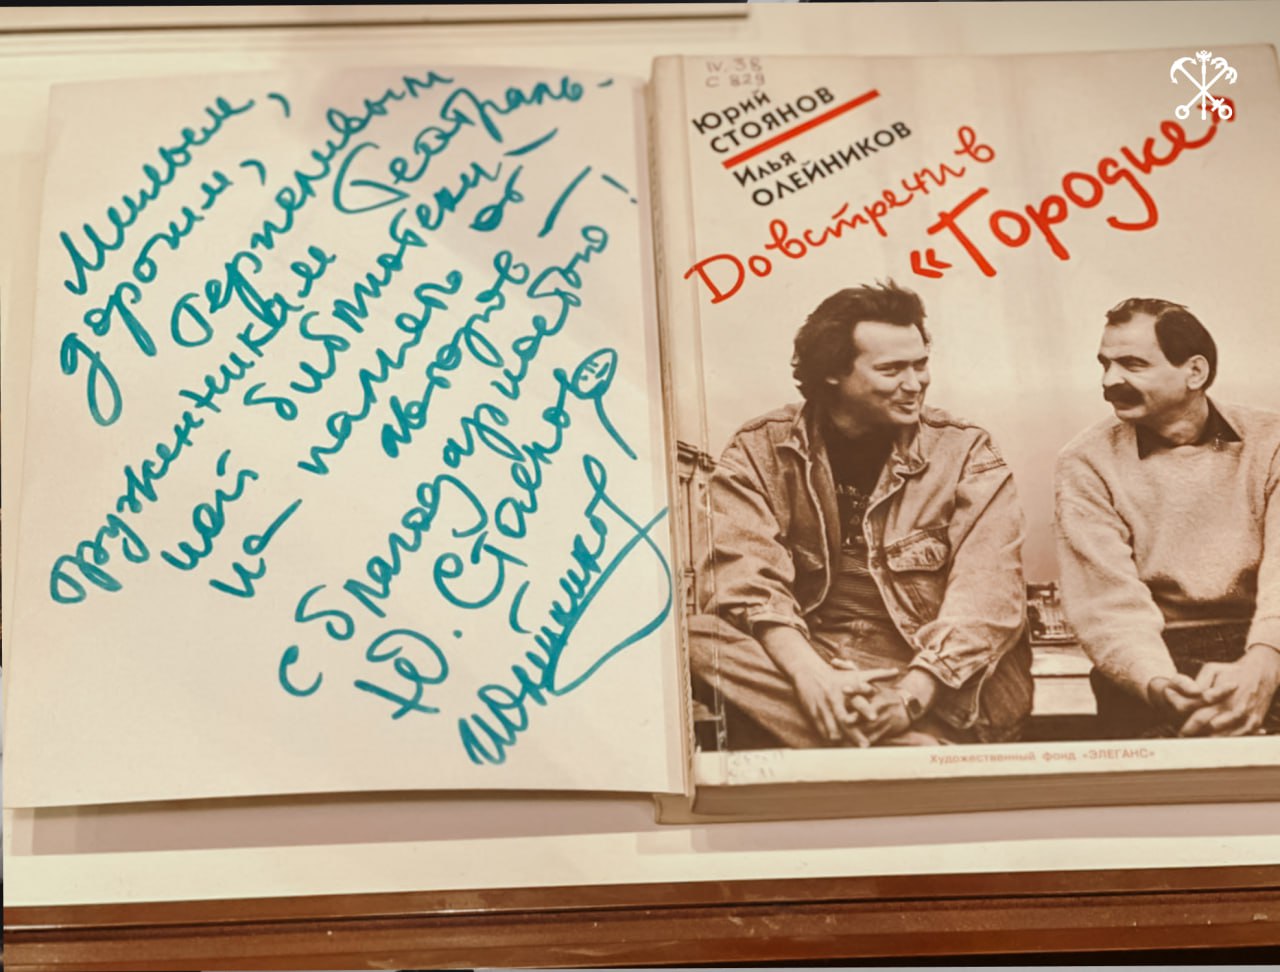 Милым,
дорогим,
терпеливым
труженникам Театраль-
ной библиотеки —
на память от
авторов — !
С благодарностью
Ю. Стоянов
ИОлейников
IV. 38
С 829
Юрий
СТОЯНОВ
Илья
ОЛЕЙНИКОВ
До встречи в
«Городке»
Художественный фонд «ЭЛЕГАНС»